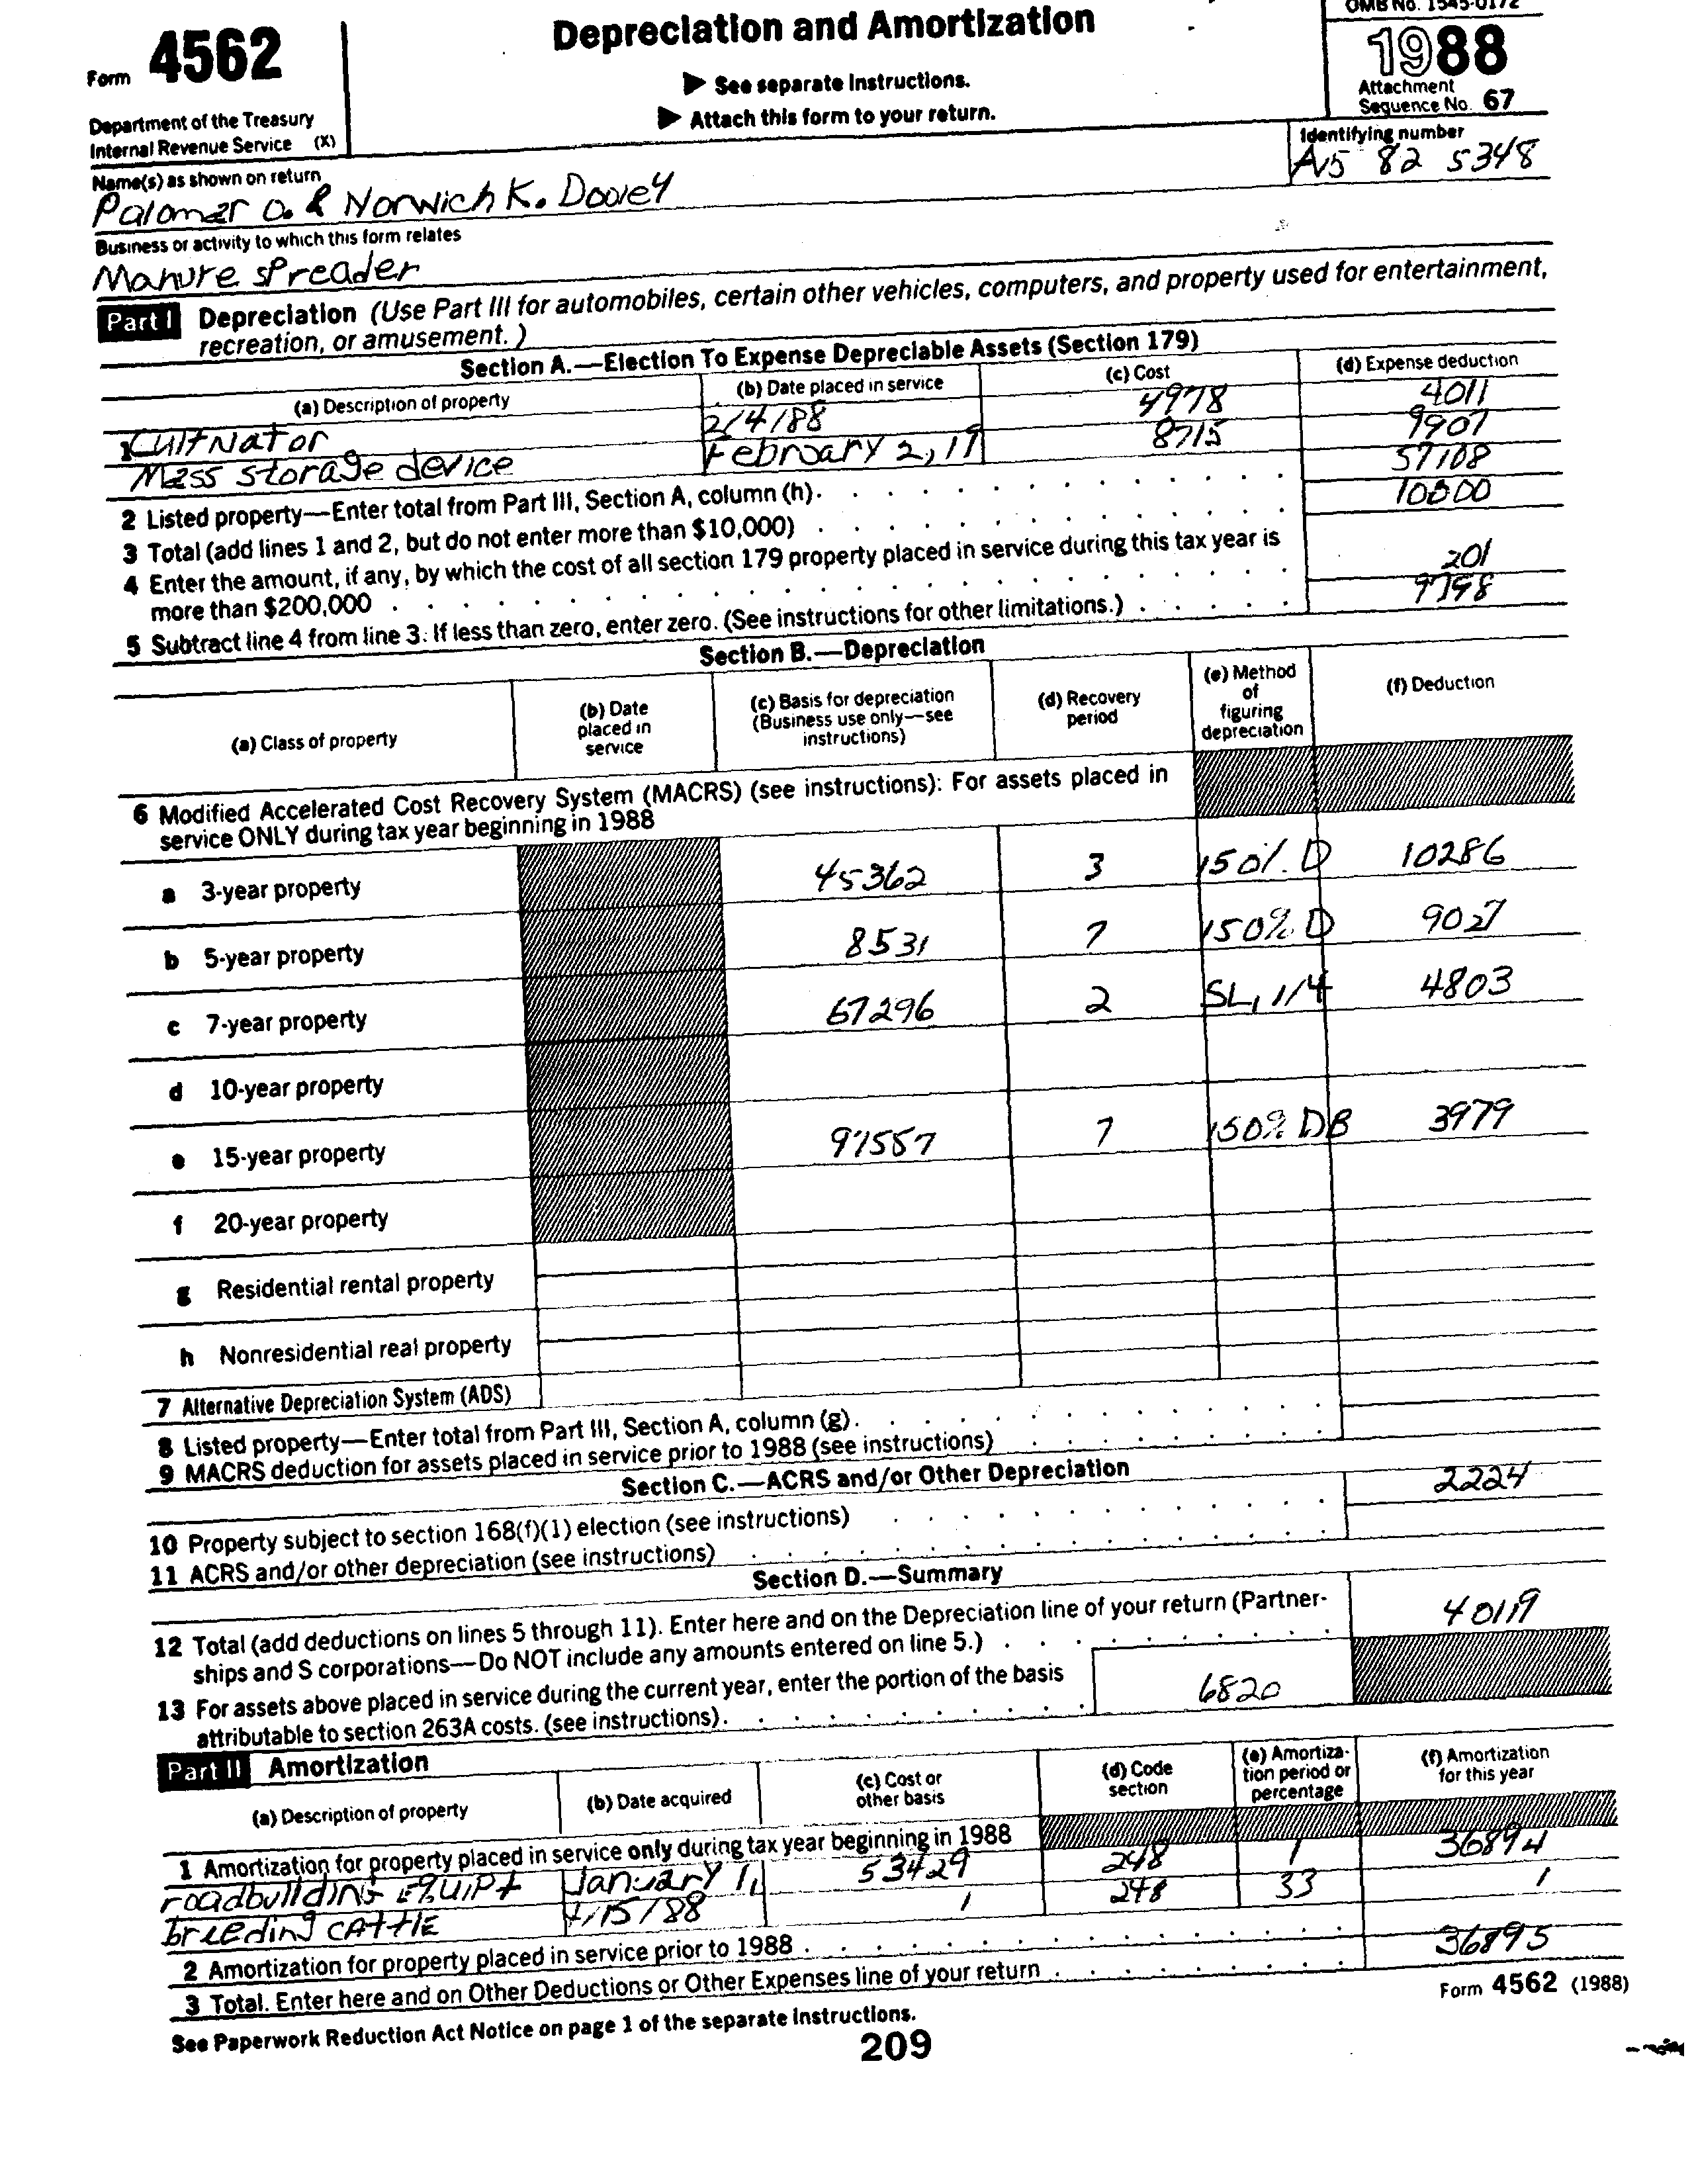 OMB No. 1545-0172
Form 4562
Depreciation and Amortization
1988
▶ See separate Instructions.
▶ Attach this form to your return.
Attachment
Sequence No. 67
Department of the Treasury
Internal Revenue Service (X)
Name(s) as shown on return
Identifying number
82 5348
Palomar O. & Norwich K. Dooley
Business or activity to which this form relates
Manure spreader
Part I Depreciation (Use Part III for automobiles, certain other vehicles, computers, and property used for entertainment,
recreation, or amusement.)
Section A.—Election To Expense Depreciable Assets (Section 179)
(a) Description of property (b) Date placed in service (c) Cost (d) Expense deduction
1 2/4/88 4978 4011
Mass storage device February 2, 19 8715 9907
2 Listed property—Enter total from Part III, Section A, column (h). 57108
3 Total (add lines 1 and 2, but do not enter more than $10,000) 10000
4 Enter the amount, if any, by which the cost of all section 179 property placed in service during this tax year is
more than $200,000 201
5 Subtract line 4 from line 3. If less than zero, enter zero. (See instructions for other limitations.) 9798
Section B.—Depreciation
(a) Class of property (b) Date placed in service (c) Basis for depreciation (Business use only—see instructions) (d) Recovery period (e) Method of figuring depreciation (f) Deduction
6 Modified Accelerated Cost Recovery System (MACRS) (see instructions): For assets placed in
service ONLY during tax year beginning in 1988
a 3-year property 45362 3 150% D 10286
b 5-year property 8531 7 150% D 9027
c 7-year property 67296 2 SL, 1/4 4803
d 10-year property
e 15-year property 97557 7 150% DB 3979
f 20-year property
g Residential rental property
h Nonresidential real property
7 Alternative Depreciation System (ADS)
8 Listed property—Enter total from Part III, Section A, column (g).
9 MACRS deduction for assets placed in service prior to 1988 (see instructions)
Section C.—ACRS and/or Other Depreciation
10 Property subject to section 168(f)(1) election (see instructions) 2224
11 ACRS and/or other depreciation (see instructions)
Section D.—Summary
12 Total (add deductions on lines 5 through 11). Enter here and on the Depreciation line of your return (Partner-
ships and S corporations—Do NOT include any amounts entered on line 5.) 40119
13 For assets above placed in service during the current year, enter the portion of the basis
attributable to section 263A costs. (see instructions). 6820
Part II Amortization
(a) Description of property (b) Date acquired (c) Cost or other basis (d) Code section (e) Amortization period or percentage (f) Amortization for this year
1 Amortization for property placed in service only during tax year beginning in 1988
roadbuilding equipt January 1, 53429 248 1 36894
breeding cattle 4/15/88 1 248 33 1
2 Amortization for property placed in service prior to 1988
3 Total. Enter here and on Other Deductions or Other Expenses line of your return 36895
See Paperwork Reduction Act Notice on page 1 of the separate Instructions.
Form 4562 (1988)
209